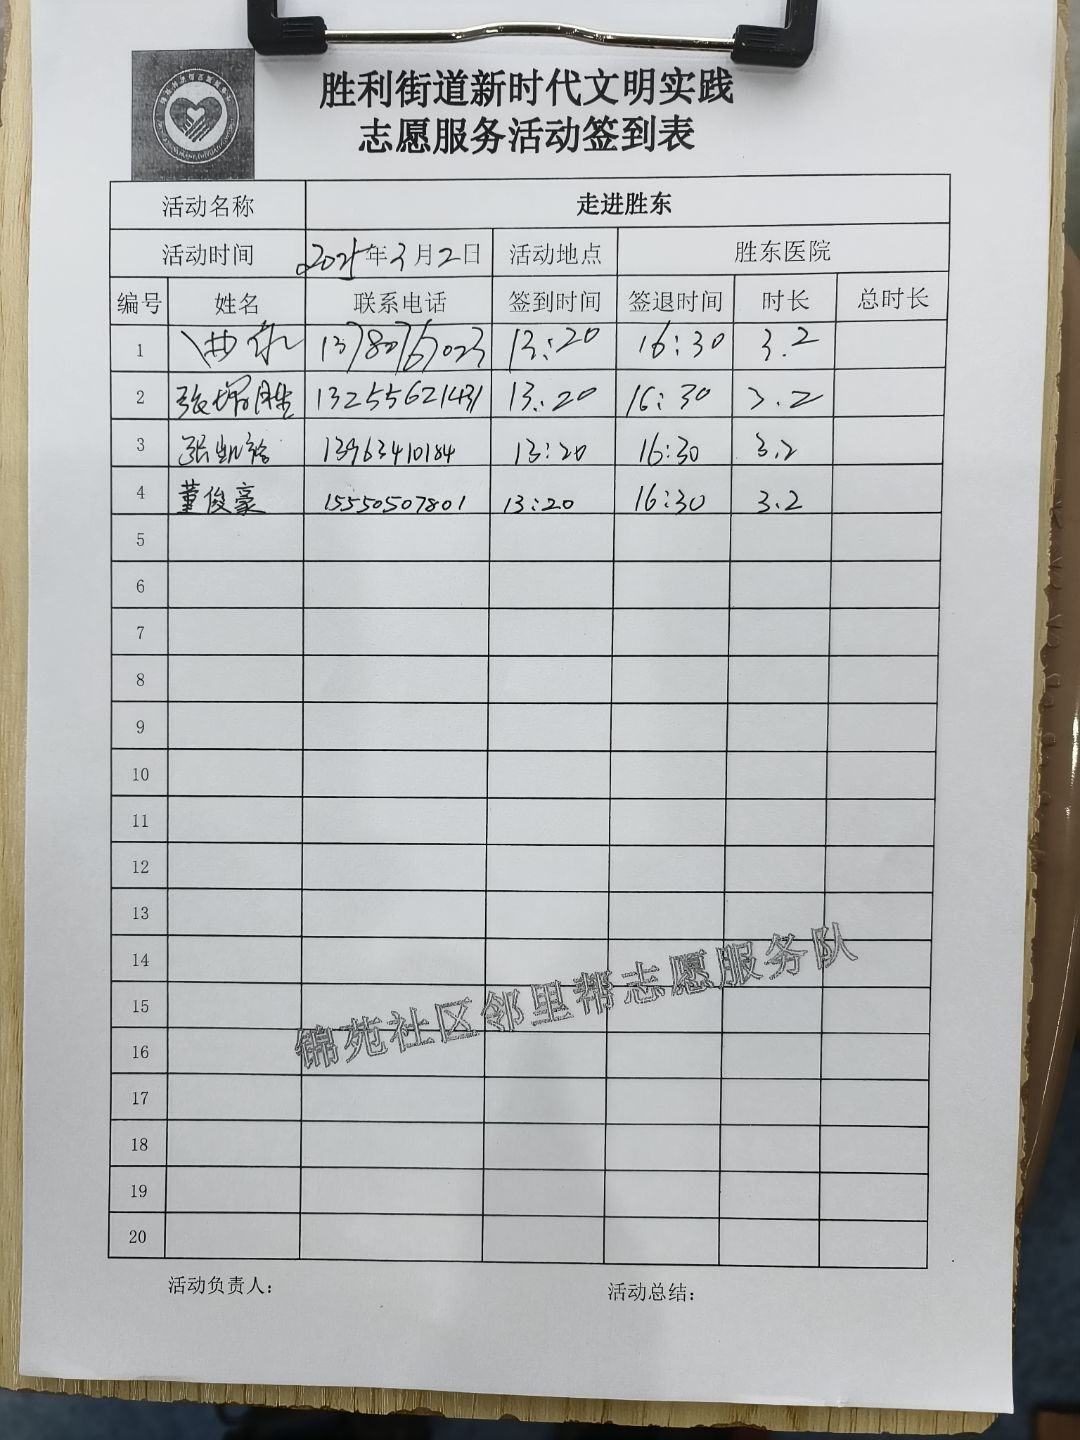 胜利街道新时代文明实践
志愿服务活动签到表
活动名称 走进胜东
活动时间 2025年3月2日 活动地点 胜东医院
编号 姓名 联系电话 签到时间 签退时间 时长 总时长
1 13:20 16:30 3.2
2 张增胜 13255621431 13:20 16:30 3.2
3 13963410184 13:20 16:30 3.2
4 董俊豪 15550507801 13:20 16:30 3.2
5
6
7
8
9
10
11
12
13
14
15
16
17
18
19
20
锦苑社区邻里帮志愿服务队
活动负责人: 活动总结: